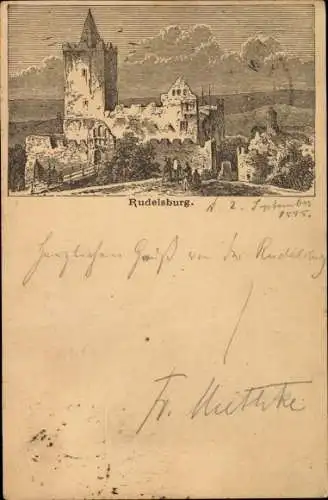 Rudelsburg.
d 2. September
1895.
Herzlichen Gruß von der Rudelsburg
Fr. Miethke